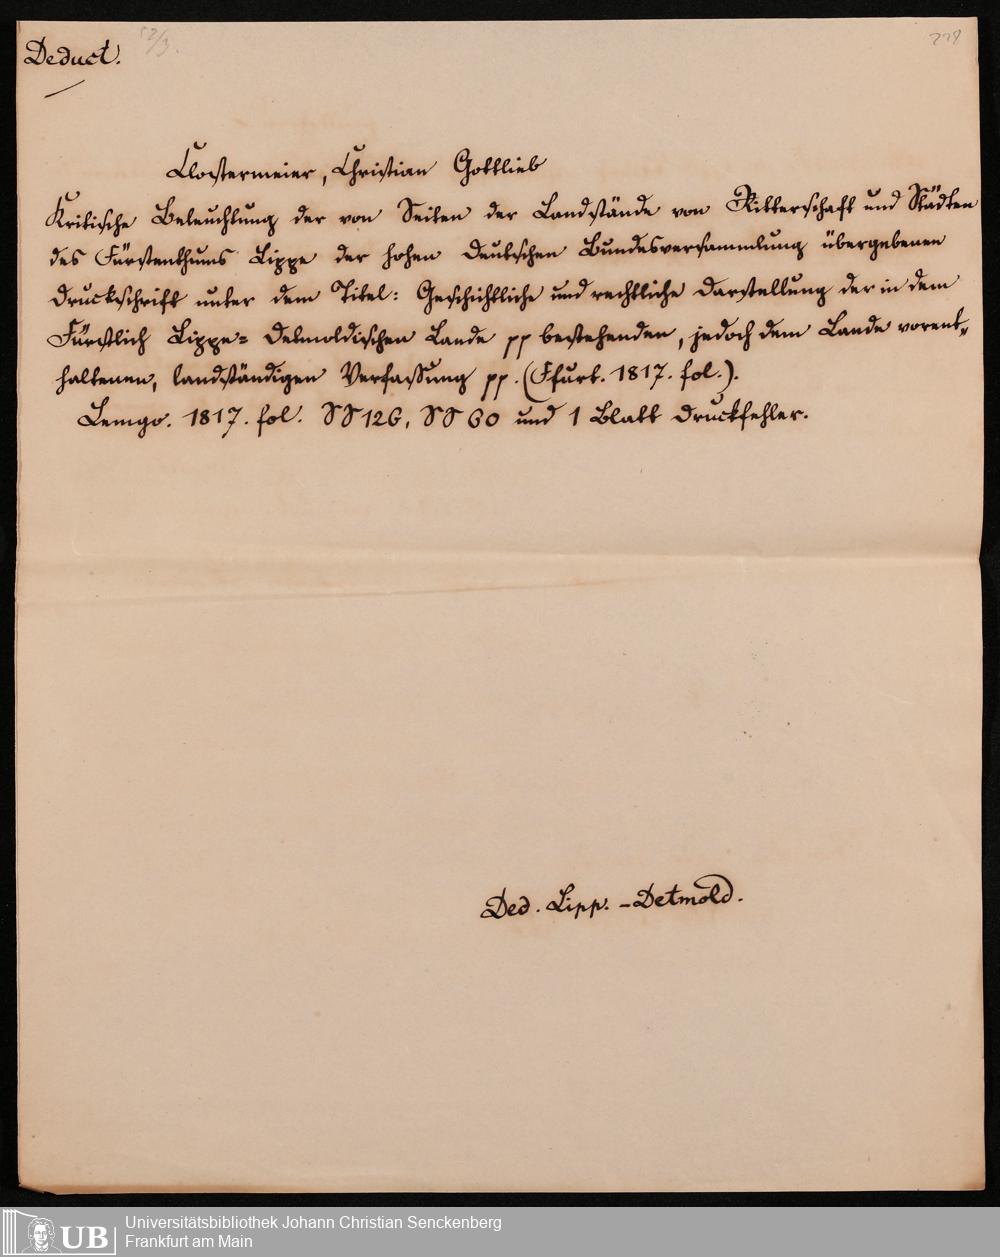 Deduct.
52/3.
228
Clostermeier, Christian Gottlieb
Kritische Beleuchtung der von Seiten der Landstände von Ritterschaft und Städten
des Fürstenthums Lippe der hohen deutschen Bundesversammlung übergebenen
Druckschrift unter dem Titel: Geschichtliche und rechtliche Darstellung der in dem
Fürstlich Lippe= Detmoldischen Lande pp bestehenden, jedoch dem Lande vorent=
haltenen, landständigen Verfassung pp. (Ffurt. 1817. fol.).
Lemgo. 1817. fol. SS 126, SS 60 und 1 Blatt Druckfehler.
Ded. Lipp. - Detmold.
UB
Universitätsbibliothek Johann Christian Senckenberg
Frankfurt am Main